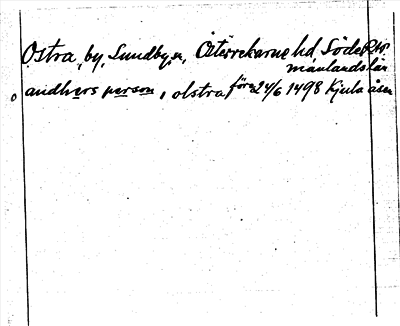 Ostra, by, Sundby sn, Österrekarne hd, Söder-
manlands län
o andhers person, i olstra före 24/6 1498 Kjula åsen